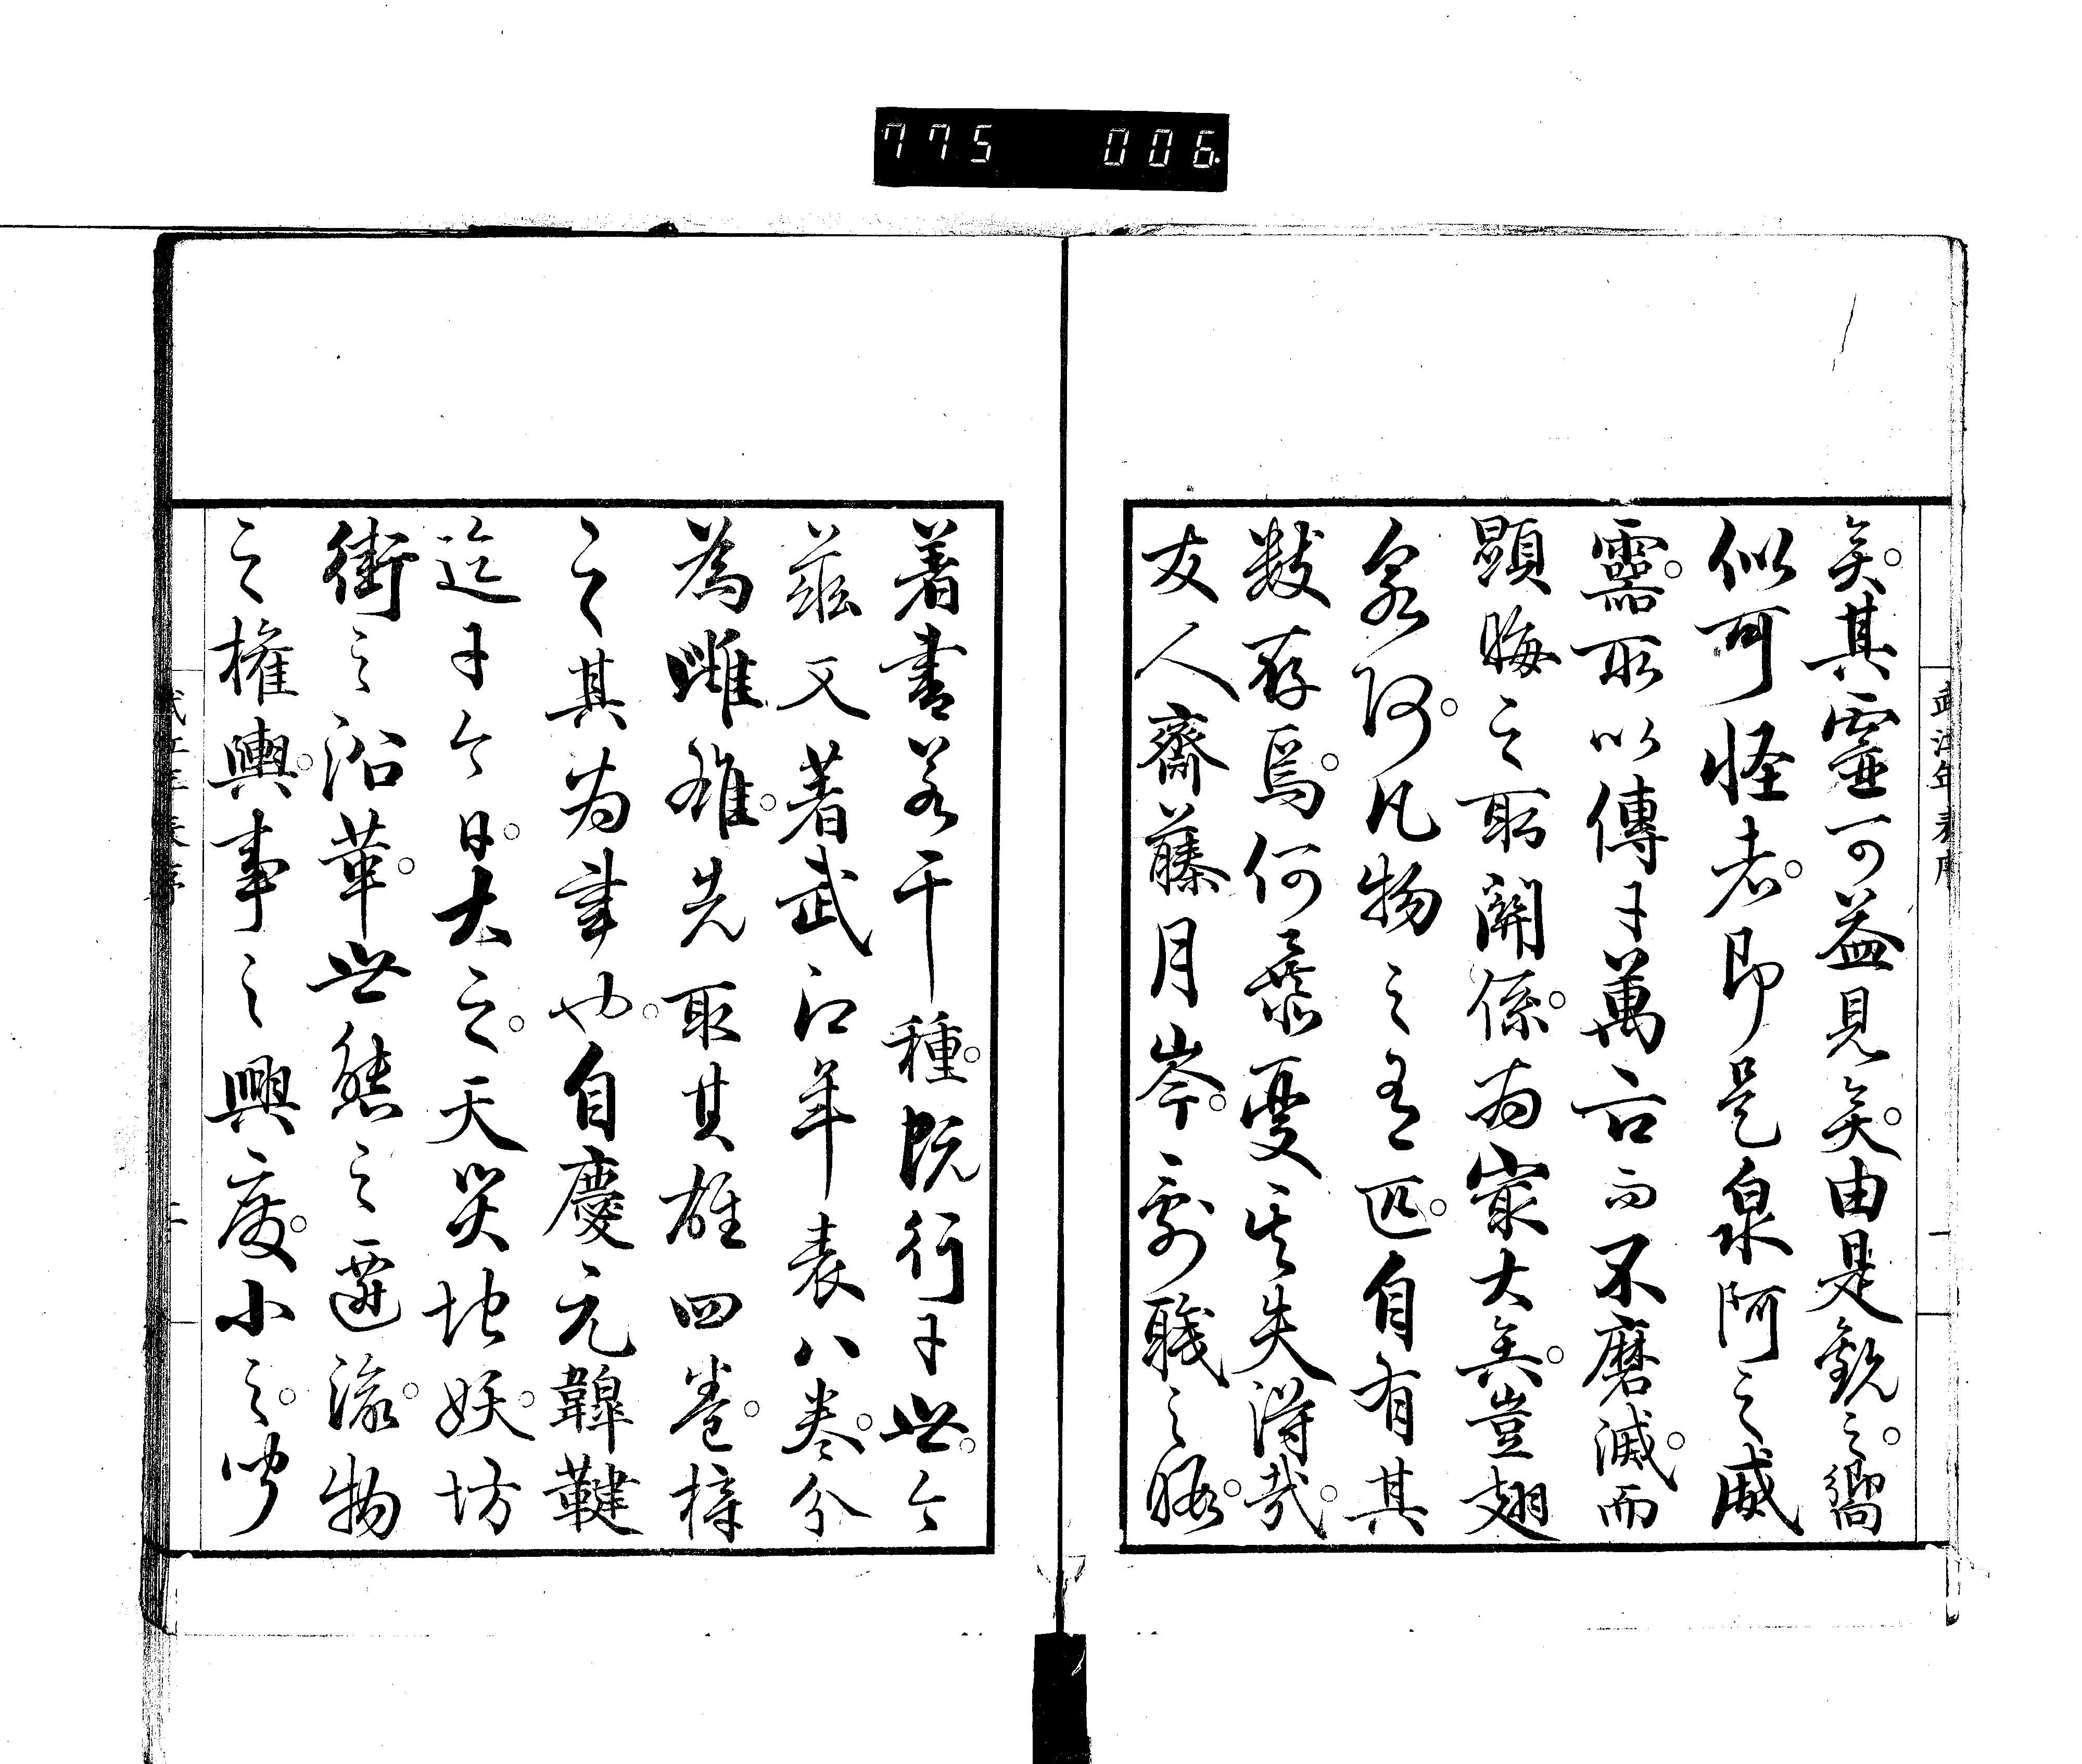 775 006.
武江年表序 一
矣。其靈可益見矣。由是觀之。嚮
似可怪者。即是泉阿之威
靈。所以傳于萬古而不磨滅。而
顯晦之所關係。為最大矣。豈翅
泉阿。凡物之有匹。自有其
數存焉。何意憂其失得哉。
友人齋藤月岑。劇職之暇。
著書若干種。既行于世。今
茲又著武江年表八卷。分
為雌雄。先取其雄四卷。梓
之。其為書也。自慶元韓鞬
迄于今日。大之。天災地妖。坊
街之沿革。世態之遷流。物
之權輿。事之興廢。小之。
武江年表序 二